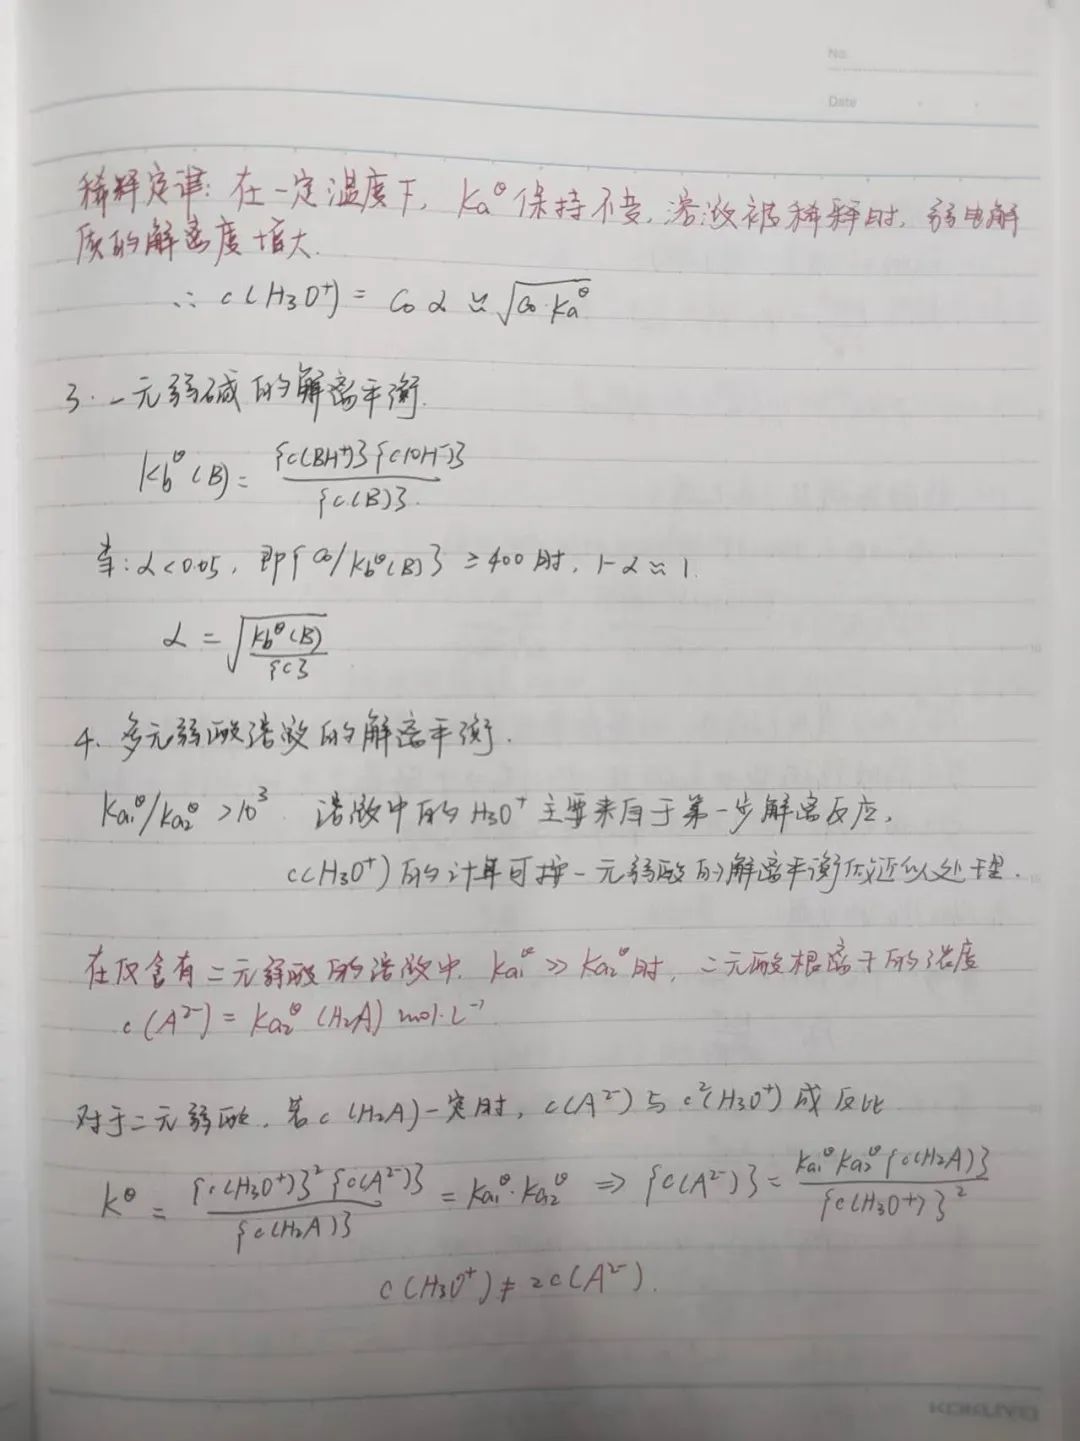 No.
Date
稀释定律: 在一定温度下, Ka^θ 保持不变, 溶液被稀释时, 弱电解
质的解离度增大.
∴ c(H₃O⁺) = c₀α ≈ √(c₀·Ka^θ)
3. 一元弱碱的解离平衡.
Kb^θ(B) = {c(BH⁺)}{c(OH⁻)} / {c(B)}.
当: α<0.05, 即{c₀/Kb^θ(B)} ≥400时, 1-α≈1.
α = √(Kb^θ(B)/{c})
4. 多元弱酸溶液的解离平衡.
Ka₁^θ/Ka₂^θ >10³ 溶液中的H₃O⁺主要来自于第一步解离反应,
c(H₃O⁺)的计算可按一元弱酸的解离平衡做近似处理.
在仅含有二元弱酸的溶液中, Ka₁^θ ≫ Ka₂^θ时, 二元酸根离子的浓度
c(A²⁻) = Ka₂^θ(H₂A) mol·L⁻¹
对于二元弱酸, 若c(H₂A)一定时, c(A²⁻)与c²(H₃O⁺)成反比
K^θ = {c(H₃O⁺)}²{c(A²⁻)} / {c(H₂A)} = Ka₁^θ·Ka₂^θ ⇒ {c(A²⁻)} = Ka₁^θKa₂^θ{c(H₂A)} / {c(H₃O⁺)}²
c(H₃O⁺) ≠ 2c(A²⁻).
KOKUYO